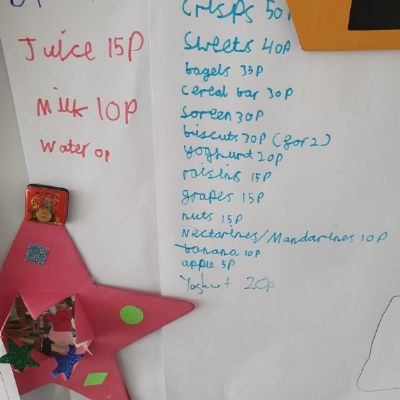 Juice 15p
Milk 10p
Water 0p
Crisps 50p
Sweets 40p
bagels 35p
cereal bar 30p
Soreen 30p
biscuits 30p (for 2)
yoghurt 20p
raisins 15p
grapes 15p
nuts 15p
Nectarines/Mandarines 10p
banana 10p
apple 5p
Yoghurt 20p